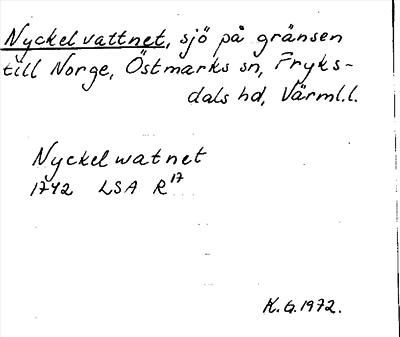 Nyckelvattnet, sjö på gränsen
till Norge, Östmarks sn, Fryks-
dals hd, Värml.l.
Nyckelwatnet
1742 LSA R 17
K.G. 1972.